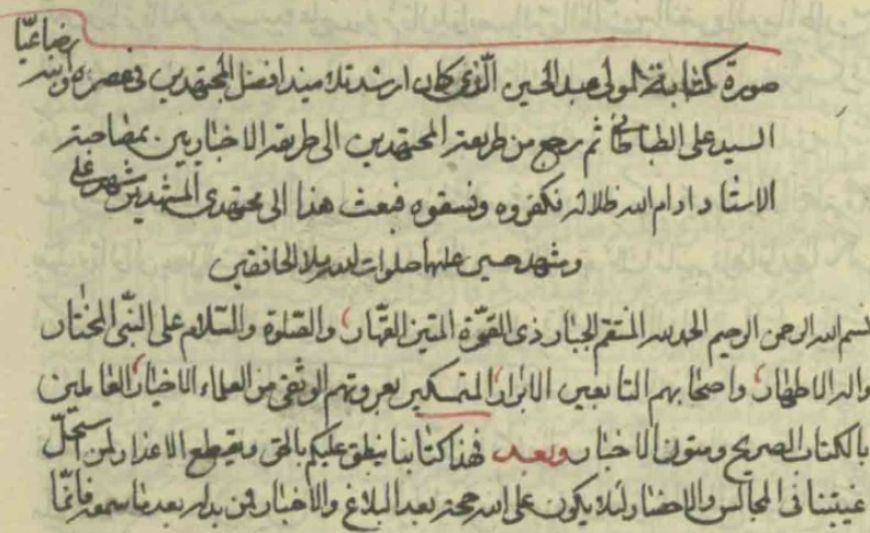 صورة كتابة المولى عبد الحسين الذى كان ارشد تلاميذ افضل المجتهدين فى عصره
السيد على الطباطبائى ثم رجع من طريقة المجتهدين الى طريقة الاخباريين بمصاحبة
الاستاد ادام الله ظلاله فكفروه وفسقوه فبعث هذا الى مجتهدى المشهدين مشهد على
ومشهد حسين عليهما صلوات الله ملاء الخافقين
بسم الله الرحمن الرحيم الحمد لله المنتقم الجبار ذى القوّة المتين القهّار والصّلوة والسّلام على النّبى المختار
واله الاطهار واصحابهم التابعين الابرار المتمسكين بعروتهم الوثقى من العلماء الاخيار العاملين
بالكتاب الصريح ومتون الاخبار وبعد فهذا كتابنا ينطق عليكم بالحق ويقطع الاعذار لمن استحلّ
غيبتنا فى المجالس والاحضار لئلا يكون على الله حجة بعد البلاغ والاخبار فمن بدله بعد ما سمعه فانمّا